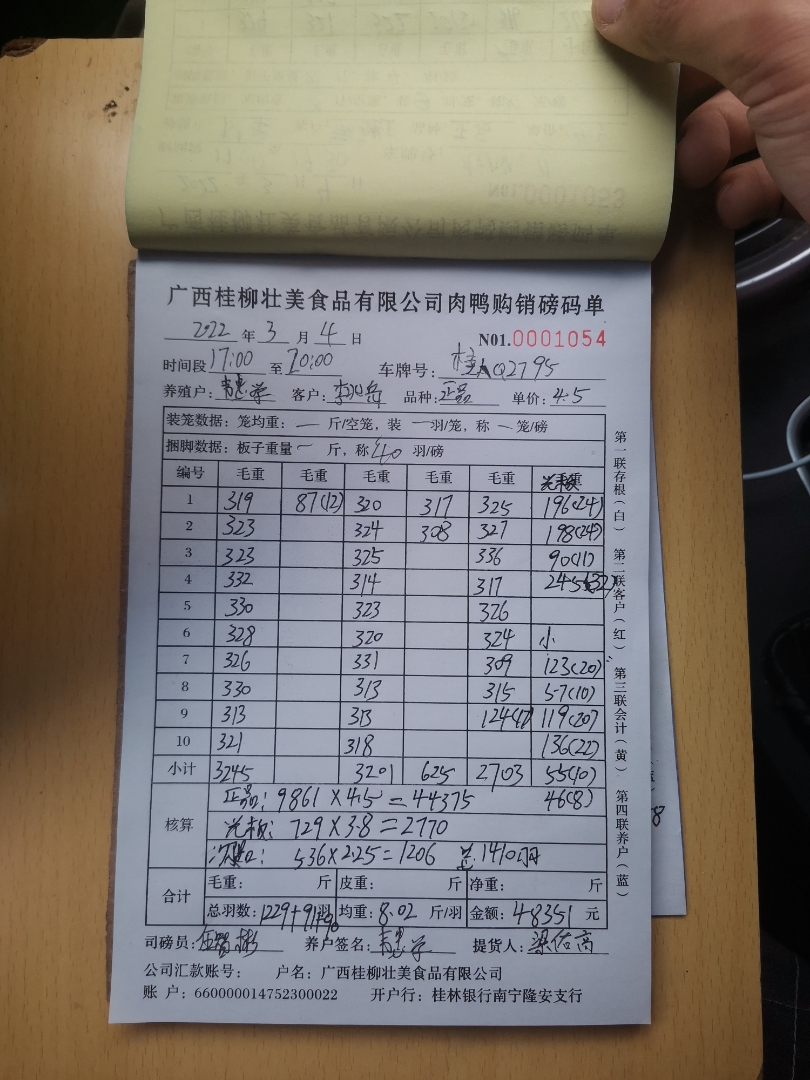 广西桂柳壮美食品有限公司肉鸭购销磅码单
2022 年 3 月 4 日 N01.0001054
时间段 17:00 至 20:00 车牌号: 桂AQ2795
养殖户: 客户: 品种: 正品 单价: 4.5
装笼数据: 笼均重: — 斤/空笼, 装 — 羽/笼, 称 — 笼/磅
捆脚数据: 板子重量 — 斤, 称 40 羽/磅
编号 毛重 毛重 毛重 毛重 毛重
1 319 87(12) 320 317 325 196(24)
2 323 324 308 327 198(24)
3 323 325 336 90(11)
4 332 314 317 245(32)
5 330 323 326
6 328 320 324 小
7 326 331 309 123(20)
8 330 313 315 57(10)
9 313 313 124(17) 119(20)
10 321 318 136(22)
小计 3245 3201 625 2703 55(10)
46(8)
核算
正品: 9861×4.5=44375
729×3.8=2770
536×2.25=1206 总1410羽
合计
毛重: 斤 皮重: 斤 净重: 斤
总羽数: 1229+91+90 羽 均重: 8.02 斤/羽 金额: 48351 元
司磅员: 养户签名: 提货人: 梁佑高
公司汇款账号: 户名: 广西桂柳壮美食品有限公司
账 户: 660000014752300022 开户行: 桂林银行南宁隆安支行
第一联存根(白) 第二联客户(红) 第三联会计(黄) 第四联养户(蓝)